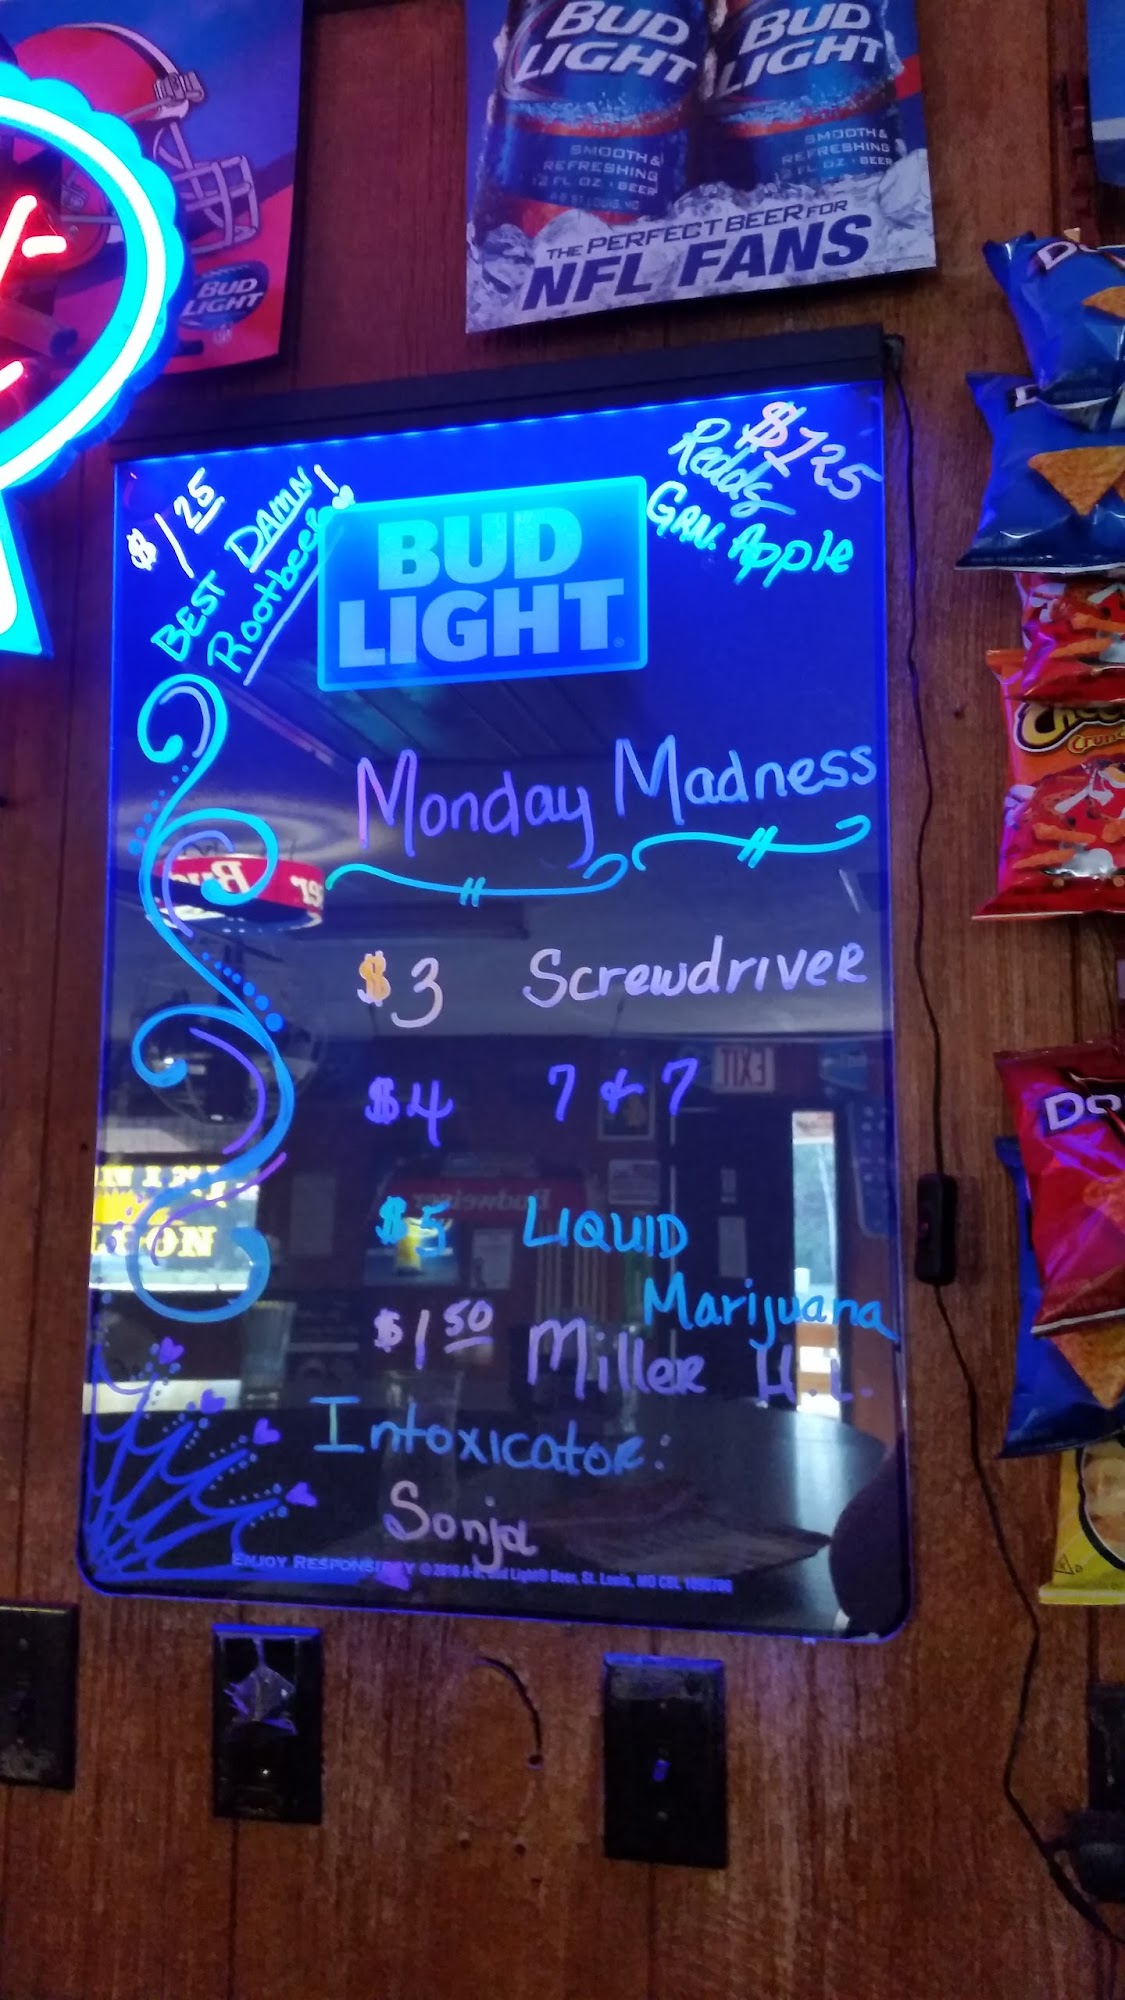 BUD LIGHT
BUD LIGHT
SMOOTH & REFRESHING
12 FL OZ · BEER
SMOOTH & REFRESHING
12 FL OZ · BEER
THE PERFECT BEER FOR
NFL FANS
BUD LIGHT
$1 25
BEST DAMN
Rootbeer!
$1 25
Redds
GRN. Apple
BUD
LIGHT
Monday Madness
$3 Screwdriver
$4 7 & 7
$5 LIQUID
Marijuana
$1 50 Miller H.L.
Intoxicator:
Sonja
ENJOY RESPONSIBLY
EXIT
Budweiser